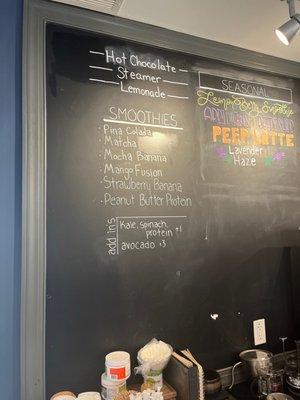 Hot Chocolate
Steamer
Lemonade
SMOOTHIES
Pina Colada
Matcha
Mocha Banana
Mango Fusion
Strawberry Banana
Peanut Butter Protein
add ins
Kale, spinach,
protein +1
avocado +3
SEASONAL
PEEP LATTE
Lavender
Haze